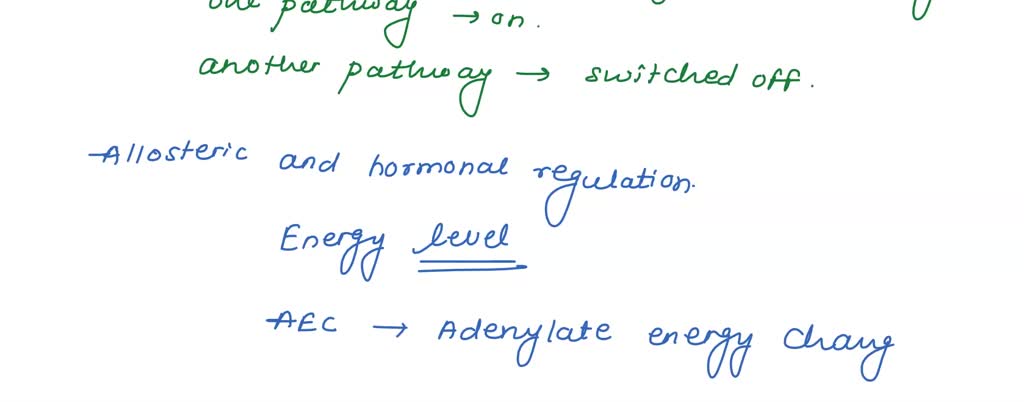 one pathway → on.
another pathway → switched off.
→Allosteric and hormonal regulation.
Energy level
AEC → Adenylate energy charg